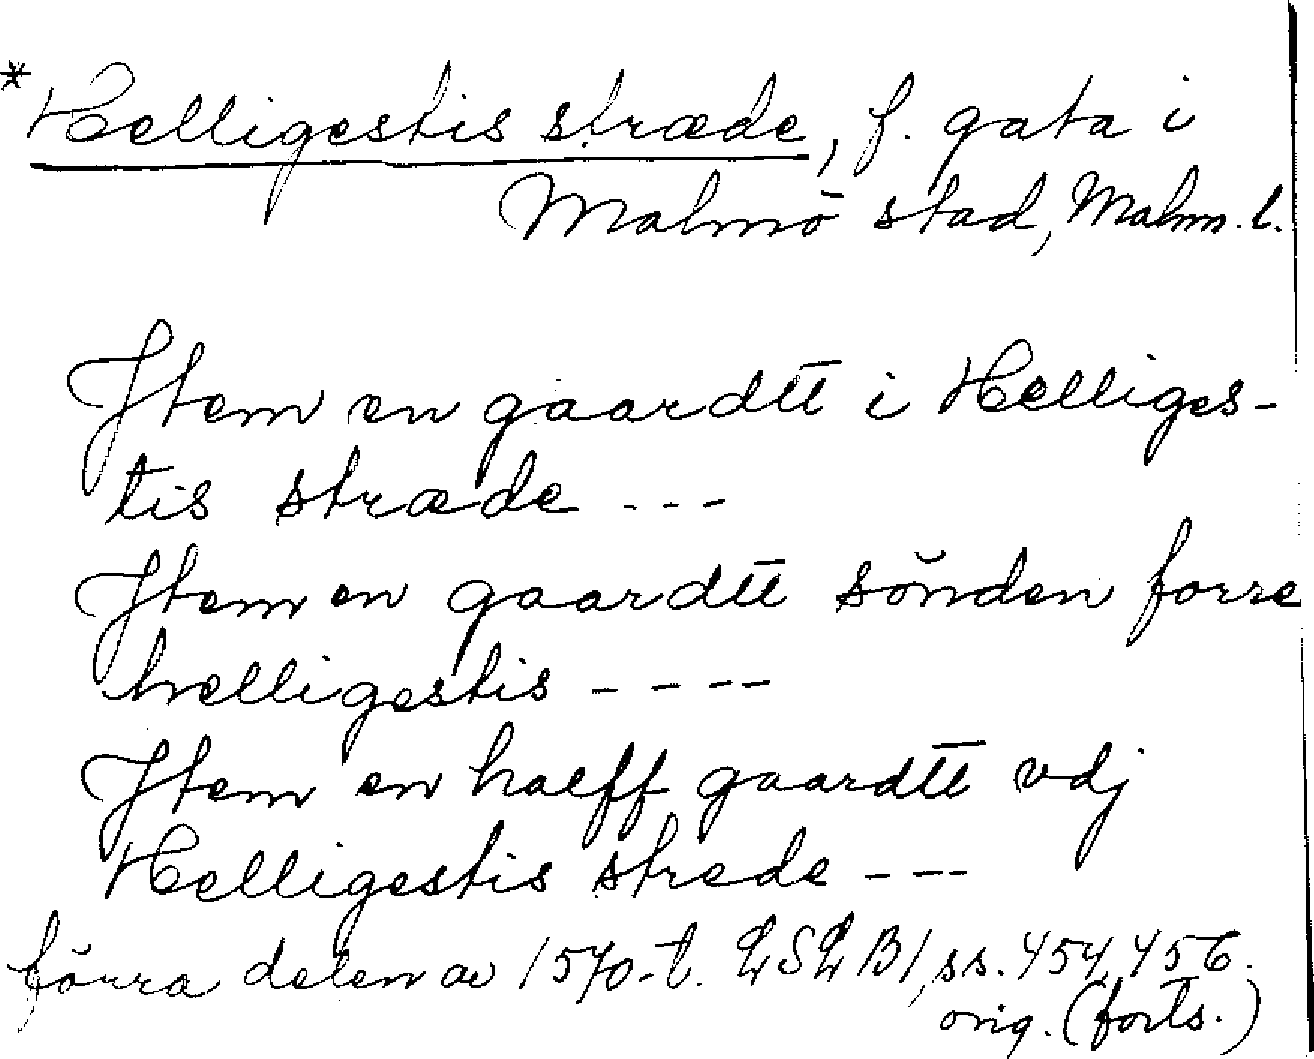 *Helligestis stræde, f. gata i
Malmö stad, Malm. l.
Jtem en gaardtt i Helliges-
tis stræde ---
Jtem en gaardtt sönden forre
helligestis ----
Jtem en halff gaardtt vdj
Helligestis strede ---
förra delen av 1570-t. LSLB1, ss. 454, 456.
orig. (forts.)